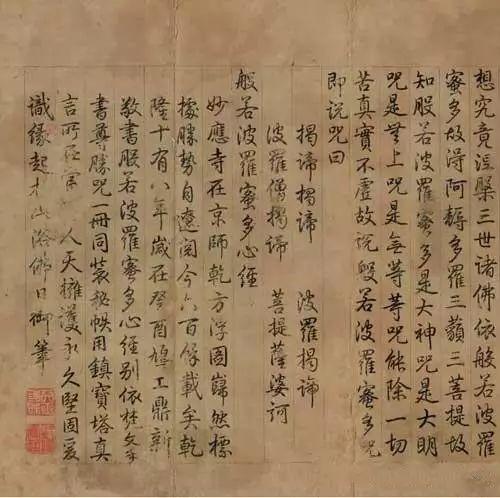 想究竟涅槃三世诸佛依般若波羅
蜜多故得阿耨多羅三藐三菩提故
知般若波羅蜜多是大神咒是大明
咒是無上咒是無等等咒能除一切
苦真實不虛故说般若波羅蜜多咒
即说咒曰
揭諦揭諦 波羅揭諦
波羅僧揭諦 菩提薩婆訶
般若波羅蜜多心經
妙應寺在京師乾方浮圖巋然標
據勝勢自遼閱今六百餘載矣乾
隆十有八年歲在癸酉鳩工鼎新
敬書般若波羅蜜多心經別依梵文手
書尊勝咒一冊同裝秘帙用鎮寶塔真
言所在 人天擁護永久堅固爰
識緣起於此浴佛日御筆